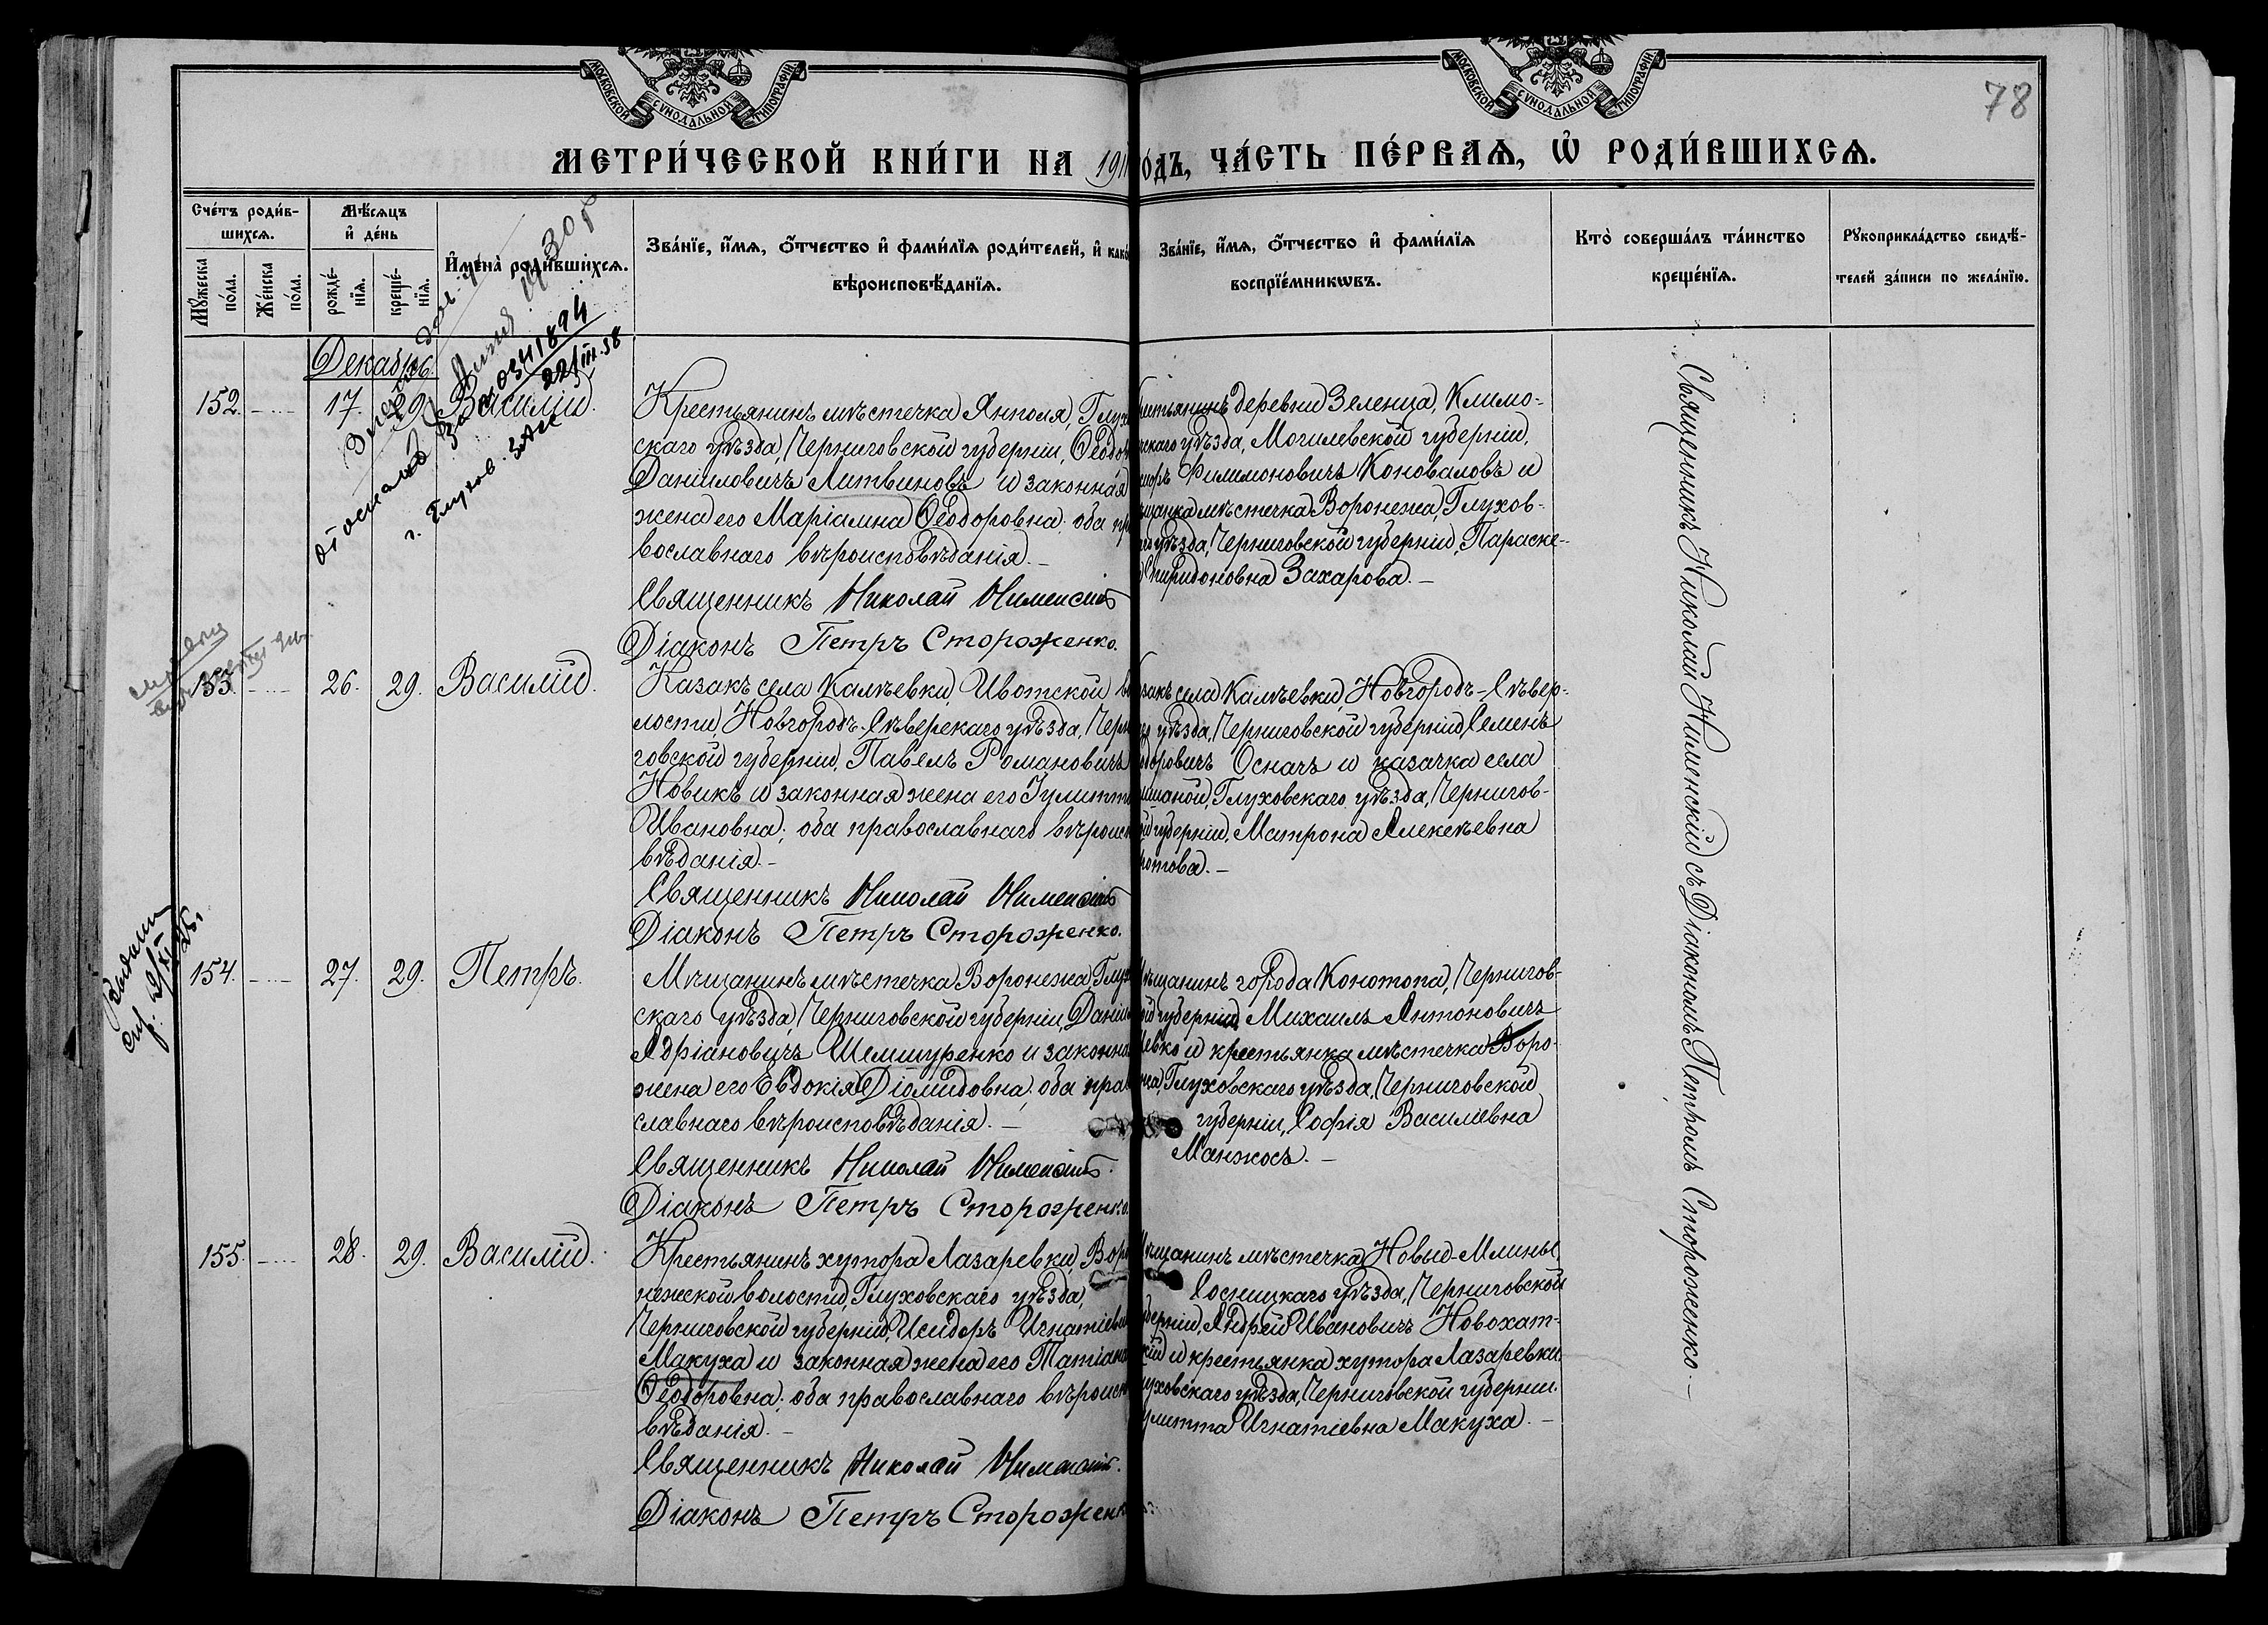 МОСКОВСКОЙ СУНОДАЛЬНОЙ ТИПОГРАФІИ
МОСКОВСКОЙ СУНОДАЛЬНОЙ ТИПОГРАФІИ
78
МЕТРИ́ЧЕСКОЙ КНИ́ГИ НА 191
О́ДЪ, ЧА́СТЬ ПЕ́РВАѦ, Ѡ҆ РОДИ́ВШИХСѦ.
Сче́тъ роди́в-
шихсѧ.
Мꙋ́жеска по́ла.
Же́нска по́ла.
Мѣ́сѧцъ
и҆ де́нь
рожде́-
нїѧ.
креще́-
нїѧ.
И҆мена̀ роди́вшихсѧ.
Зва́нїе, и҆́мѧ, ѻ҆́тчество и҆ фами́лїѧ роди́телей, и҆ како
вѣроисповѣ́данїѧ.
Зва́нїе, и҆́мѧ, ѻ҆́тчество и҆ фами́лїѧ
воспрїе́мникѡвъ.
Кто̀ соверша́лъ та́инство
креще́нїѧ.
Рꙋкоприкла́дство свидѣ́-
телей за́писи по жела́нїю.
Декабрь.
152. 17. 29. Василій.
Крестьянинъ мѣстечка Ямполя, Глухо
скаго уѣзда, Черниговской губерніи, Ѳеодо
Даніиловичъ Литвиновъ и законная
жена его Маріамна Ѳеодоровна; оба пр
вославнаго вѣроисповѣданія. –
Священникъ Николай Нименскій
Діаконъ Петръ Стороженко.
рестьянинъ деревни Зеленца, Климо-
скаго уѣзда, Могилевской губерніи,
Филимоновичъ Коноваловъ и
щанка мѣстечка Воронежа, Глухов-
уѣзда, Черниговской губерніи, Параске-
Спиридоновна Захарова. –
0341894
22/III.58
г. Глухов. ЗАГС
153. 26. 29. Василій.
Казакъ села Калѣевки, Ивотской в
лости, Новгородъ-Сѣверскаго уѣзда, Черн
говской губерніи, Павелъ Романовичъ
Новикъ и законная жена его Іулитта
Ивановна; оба православнаго вѣроисп
вѣданія. –
Священникъ Николай Нименскій
Діаконъ Петръ Стороженко.
закъ села Калѣевки, Новгородъ-Сѣвер-
уѣзда, Черниговской губерніи, Семенъ
доровичъ Осначъ и казачка села
шаной, Глуховскаго уѣзда, Чернигов-
ой губерніи, Матрона Алексѣевна
ротова. –
154. 27. 29. Петръ.
Мѣщанинъ мѣстечка Воронежа, Глух
скаго уѣзда, Черниговской губерніи, Даніи
Адріановичъ Шемшуренко и законна
жена его Евдокія Діомидовна; оба прав
славнаго вѣроисповѣданія. –
Священникъ Николай Нименскій.
Діаконъ Петръ Стороженко.
ѣщанинъ города Конотопа, Чернигов-
ой губерніи Михаилъ Антоновичъ
евко и крестьянка мѣстечка Воро-
жа, Глуховскаго уѣзда, Черниговской
губерніи, Софія Василіевна
Манжосъ. –
155. 28. 29. Василій.
Крестьянинъ хутора Лазаревки, Воро
нежской волости, Глуховскаго уѣзда,
Черниговской губерніи, Исидоръ Игнатіеви
Макуха и законная жена его Татіана
Ѳеодоровна; оба православнаго вѣроисп
вѣданія. –
Священникъ Николай Нименскій.
Діаконъ Петръ Стороженк
ѣщанинъ мѣстечка Новые-Млины,
Сосницкаго уѣзда, Черниговской
берніи, Андрей Ивановичъ Новохат-
кій и крестьянка хутора Лазаревки,
луховскаго уѣзда, Черниговской губерніи,
улитта Игнатіевна Макуха. –
Священникъ Николай Нименскій съ Діакономъ Петромъ Стороженко. –